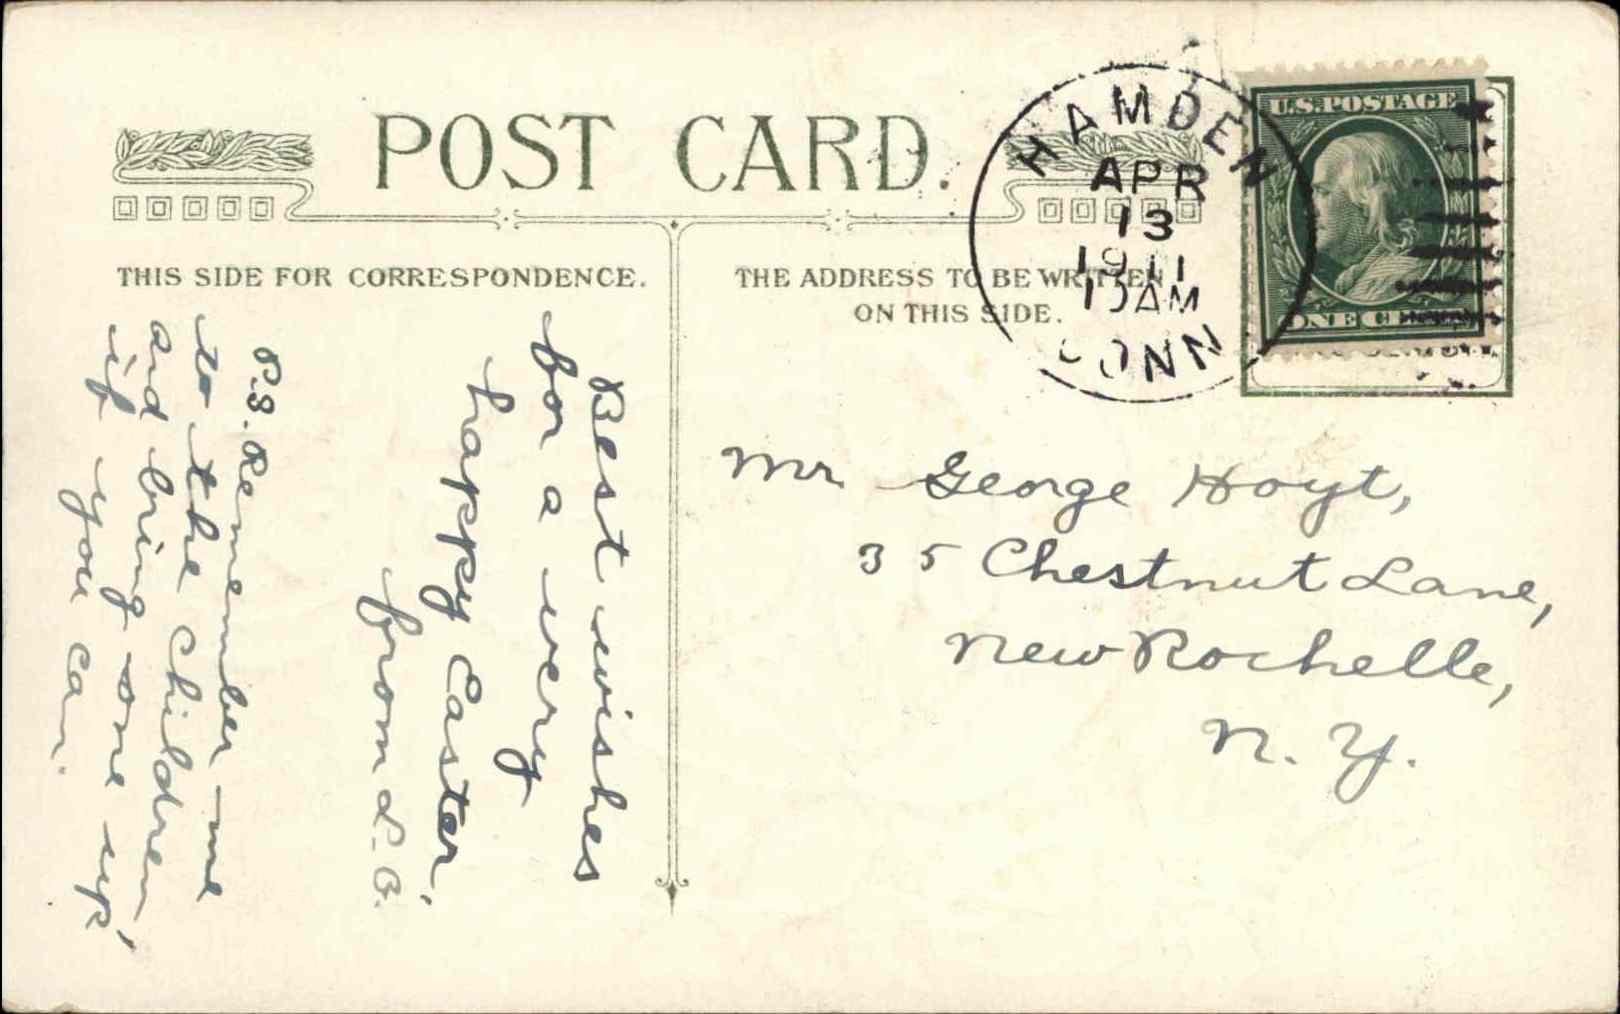 POST CARD.
THIS SIDE FOR CORRESPONDENCE.
THE ADDRESS TO BE WRITTEN
ON THIS SIDE.
HAMDEN
APR
13
1911
10AM
CONN
U.S. POSTAGE
ONE CENT
Mr George Hoyt,
35 Chestnut Lane,
New Rochelle,
N. Y.
Best wishes
for a very
happy Easter.
from L. B.
P.S. Remember me
to the children
and bring one up,
if you can.